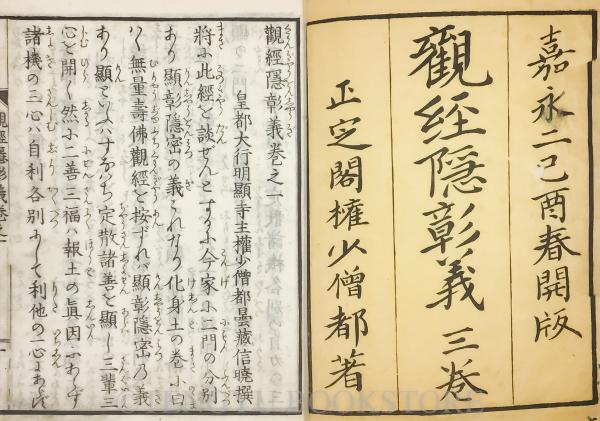 嘉永二己酉春開版
觀經隱彰義 三卷
正定閣權少僧都著
觀經隱彰義卷之一
皇都大行明顯寺主權少僧都曇藏信曉撰
將に此經を談ぜんとするに今家に二門の分別
あり顯彰隱密の義これなり化身土の卷に曰
く無量壽佛觀經を按ずれバ顯彰隱密乃義
あり顯といふハすなはち定散諸善を顯し三輩三
心を開く然に二善三福ハ報土の眞因にあらず
諸機の三心ハ自利各別にして利他の一心にあらず
觀經隱彰義卷之一
BOOKSTORE